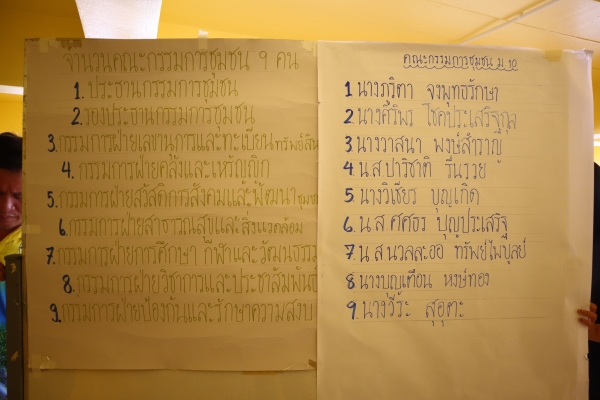 จำนวนคณะกรรมการชุมชน 9 คน
1. ประธานกรรมการชุมชน
2. รองประธานกรรมการชุมชน
3. กรรมการฝ่ายเลขานุการและทะเบียนทรัพย์สิน
4. กรรมการฝ่ายคลังและเหรัญญิก
5. กรรมการฝ่ายสวัสดิการสังคมและพัฒนาชุมชน
6. กรรมการฝ่ายสาธารณสุขและสิ่งแวดล้อม
7. กรรมการฝ่ายการศึกษา กีฬาและวัฒนธรรม
8. กรรมการฝ่ายวิชาการและประชาสัมพันธ์
9. กรรมการฝ่ายป้องกันและรักษาความสงบ
คณะกรรมการชุมชน ม.10
1 นางภริตา จงพุทธรักษา
2 นางศิริพร โชคประเสริฐกุล
3 นางวาสนา พงษ์สำราญ
4 น.ส ปาริชาติ รื่นรวย
5 นางวิเชียร บุญเกิด
6. น.ส ศศธร บุญประเสริฐ
7. น.ส นวลละออ ทรัพย์ไพบูลย์
8 นางบุญเตือน หงษ์ทอง
9. นางวีระ